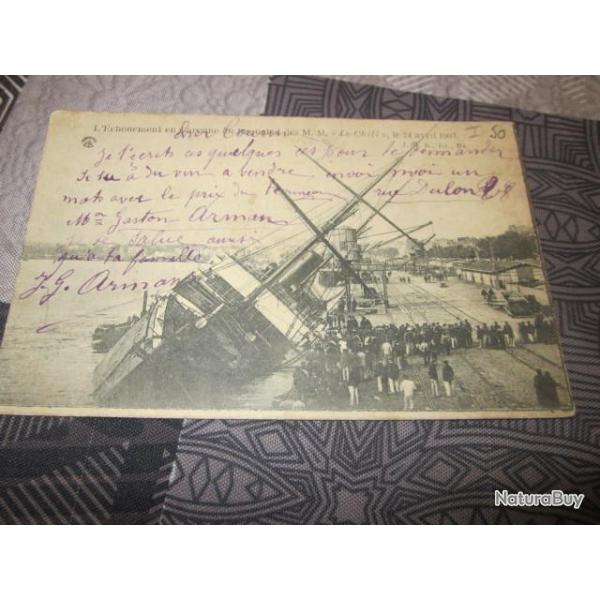 L'Echouement en Garonne du Paquebot des M. M. "Le Chili", le 24 avril 1903.
I 50
Je t'écrit ces quelques ces pour te demander
si tu à du vin a vendre envoi moi un
mots avec le prix du Tonneau rue Dulon 28
Mr Gaston Arman
je te salue aussi
qu'a ta famille
J. G. Arman
NaturaBuy